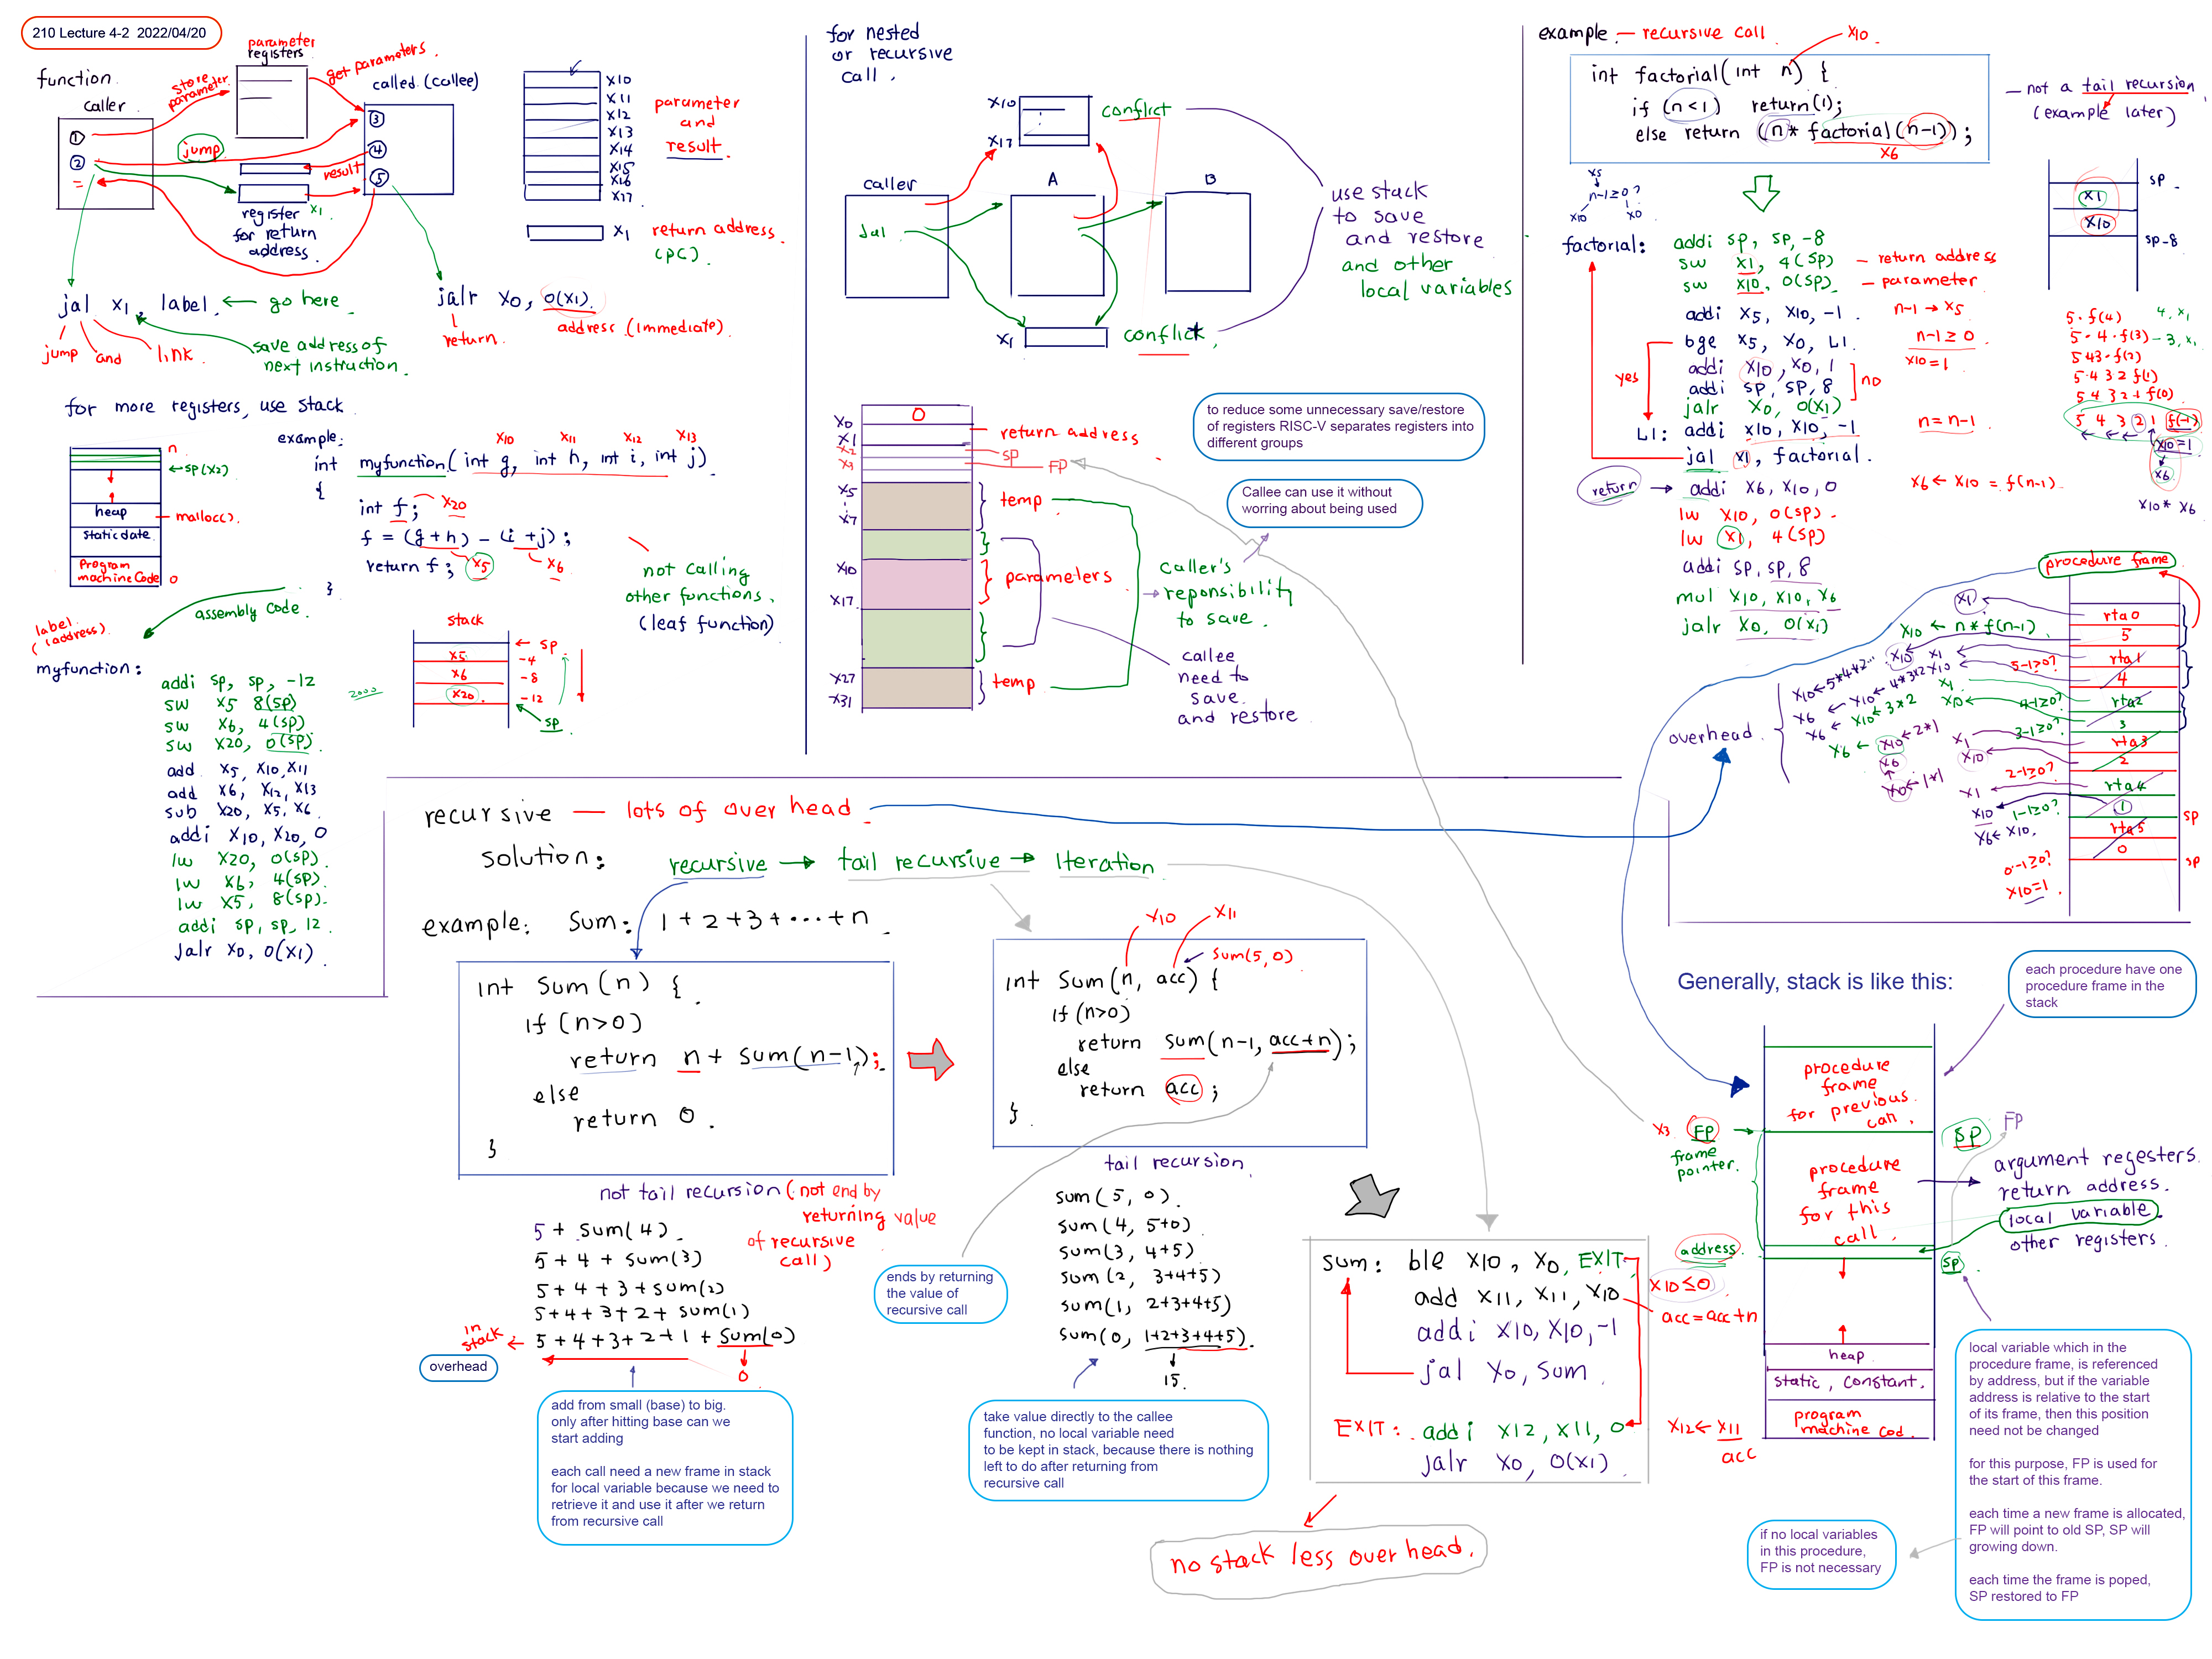 210 Lecture 4-2  2022/04/20
function.
caller
parameter
registers
store
parameter
get parameters
called (callee)
①
②
=
jump
③
④
⑤
result
register
for return
address.
x1
jal x1, label. ← go here
jump and link
save address of
next instruction.
jalr x0, 0(x1).
return.
address (immediate)
x10
x11
x12
x13
x14
x15
x16
x17
parameter
and
result.
x1 return address.
(pc).
for more registers, use stack
n
←sp (x2)
heap
malloc().
static date.
program
machine code
0
example:
x10 x11 x12 x13
int myfunction( int g, int h, int i, int j)
{
int f; x20
f = (g+h) - (i+j);
return f; x5 x6
}
not calling
other functions.
(leaf function)
assembly code.
label
(address)
myfunction:
addi sp, sp, -12
sw x5 8(sp)
sw x6, 4(sp)
sw x20, 0(sp).
add x5, x10, x11
add x6, x12, x13
sub x20, x5, x6
addi x10, x20, 0
lw x20, 0(sp).
lw x6, 4(sp).
lw x5, 8(sp).
addi sp, sp, 12.
jalr x0, 0(x1)
stack
← sp.
x5 -4
x6 -8
x20 -12
sp
2000
for nested
or recursive
call.
x10
x17
conflict
caller
A
B
jal
x1
conflict
use stack
to save
and restore
and other
local variables
x0 0
x1 return address
x2 sp
x3 FP
x5
x7
temp
x10
x17
parameters
x27
x31
temp
to reduce some unnecessary save/restore
of registers RISC-V separates registers into
different groups
Callee can use it without
worring about being used
caller's
reponsibility
to save.
callee
need to
save.
and restore
example — recursive call x10
int factorial( int n) {
if (n<1) return(1);
else return (n* factorial(n-1));
x6
— not a tail recursion
(example later)
x5
n-1≥0?
x10 x0
factorial:
addi sp, sp, -8
sw x1, 4(sp) — return address
sw x10, 0(sp). — parameter
addi x5, x10, -1. n-1 → x5
bge x5, x0, L1. n-1 ≥ 0
addi x10, x0, 1 x10=1
addi sp, sp, 8
jalr x0, 0(x1)
yes
no
L1: addi x10, x10, -1 n = n-1
jal x1, factorial.
return → addi x6, x10, 0 x6 ← x10 = f(n-1)
lw x10, 0(sp).
lw x1, 4(sp)
addi sp, sp, 8
mul x10, x10, x6
jalr x0, 0(x1)
sp
x1
x10
sp-8
5·f(4) 4, x1
5·4·f(3) – 3, x1
5 4 3·f(2)
5·4 3 2 f(1)
5 4 3 2 1 f(0)
5 4 3 2 1 f(-1)
x10=1
x6
x10* x6
procedure frame
rta0
5
rta1
4
rta2
3
rta3
2
rta4
1
rta5
0
sp
sp
x1
x10 ← n * f(n-1)
x10 x1
5-1≥0?
4-1≥0?
3-1≥0?
2-1≥0?
1-1≥0?
0-1≥0?
x10=1
x10←5*4*2...
x6 ← x10 ← 4*3*2 x10
x6 ← x10 ← 3*2
x6 ← x10 ← 2*1
x6
x10 ← 1*1
x1
x10
x6← x10.
overhead
recursive — lots of over head
solution: recursive → tail recursive → Iteration
example: sum: 1+2+3+···+n
int sum (n) {
if (n>0)
return n + sum(n-1);
else
return 0.
}
not tail recursion (not end by
returning value
of recursive
call)
5 + sum(4)
5 + 4 + sum(3)
5 + 4 + 3 + sum(2)
5+4+3+2+ sum(1)
5+4+3+2+1 + sum(0)
in
stack
0
overhead
add from small (base) to big.
only after hitting base can we
start adding
each call need a new frame in stack
for local variable because we need to
retrieve it and use it after we return
from recursive call
x10 x11
sum(5,0)
int sum(n, acc) {
if (n>0)
return sum(n-1, acc+n);
else
return acc;
}
tail recursion
sum(5, 0).
sum(4, 5+0)
sum(3, 4+5)
sum(2, 3+4+5)
sum(1, 2+3+4+5)
sum(0, 1+2+3+4+5).
15.
ends by returning
the value of
recursive call
take value directly to the callee
function, no local variable need
to be kept in stack, because there is nothing
left to do after returning from
recursive call
sum: ble x10, x0, EXIT x10≤0
add x11, x11, x10 acc=acc+n
addi x10, x10, -1
jal x0, sum
EXIT: addi x12, x11, 0 x12← x11
acc
jalr x0, 0(x1)
no stack less over head.
Generally, stack is like this:
each procedure have one
procedure frame in the
stack
procedure
frame
for previous
call.
x3 FP
frame
pointer.
SP FP
procedure
frame
for this
call.
argument regesters.
return address.
local variable.
other registers.
address
sp
heap
static, constant.
program
machine cod.
local variable which in the
procedure frame, is referenced
by address, but if the variable
address is relative to the start
of its frame, then this position
need not be changed
for this purpose, FP is used for
the start of this frame.
each time a new frame is allocated,
FP will point to old SP, SP will
growing down.
each time the frame is poped,
SP restored to FP
if no local variables
in this procedure,
FP is not necessary